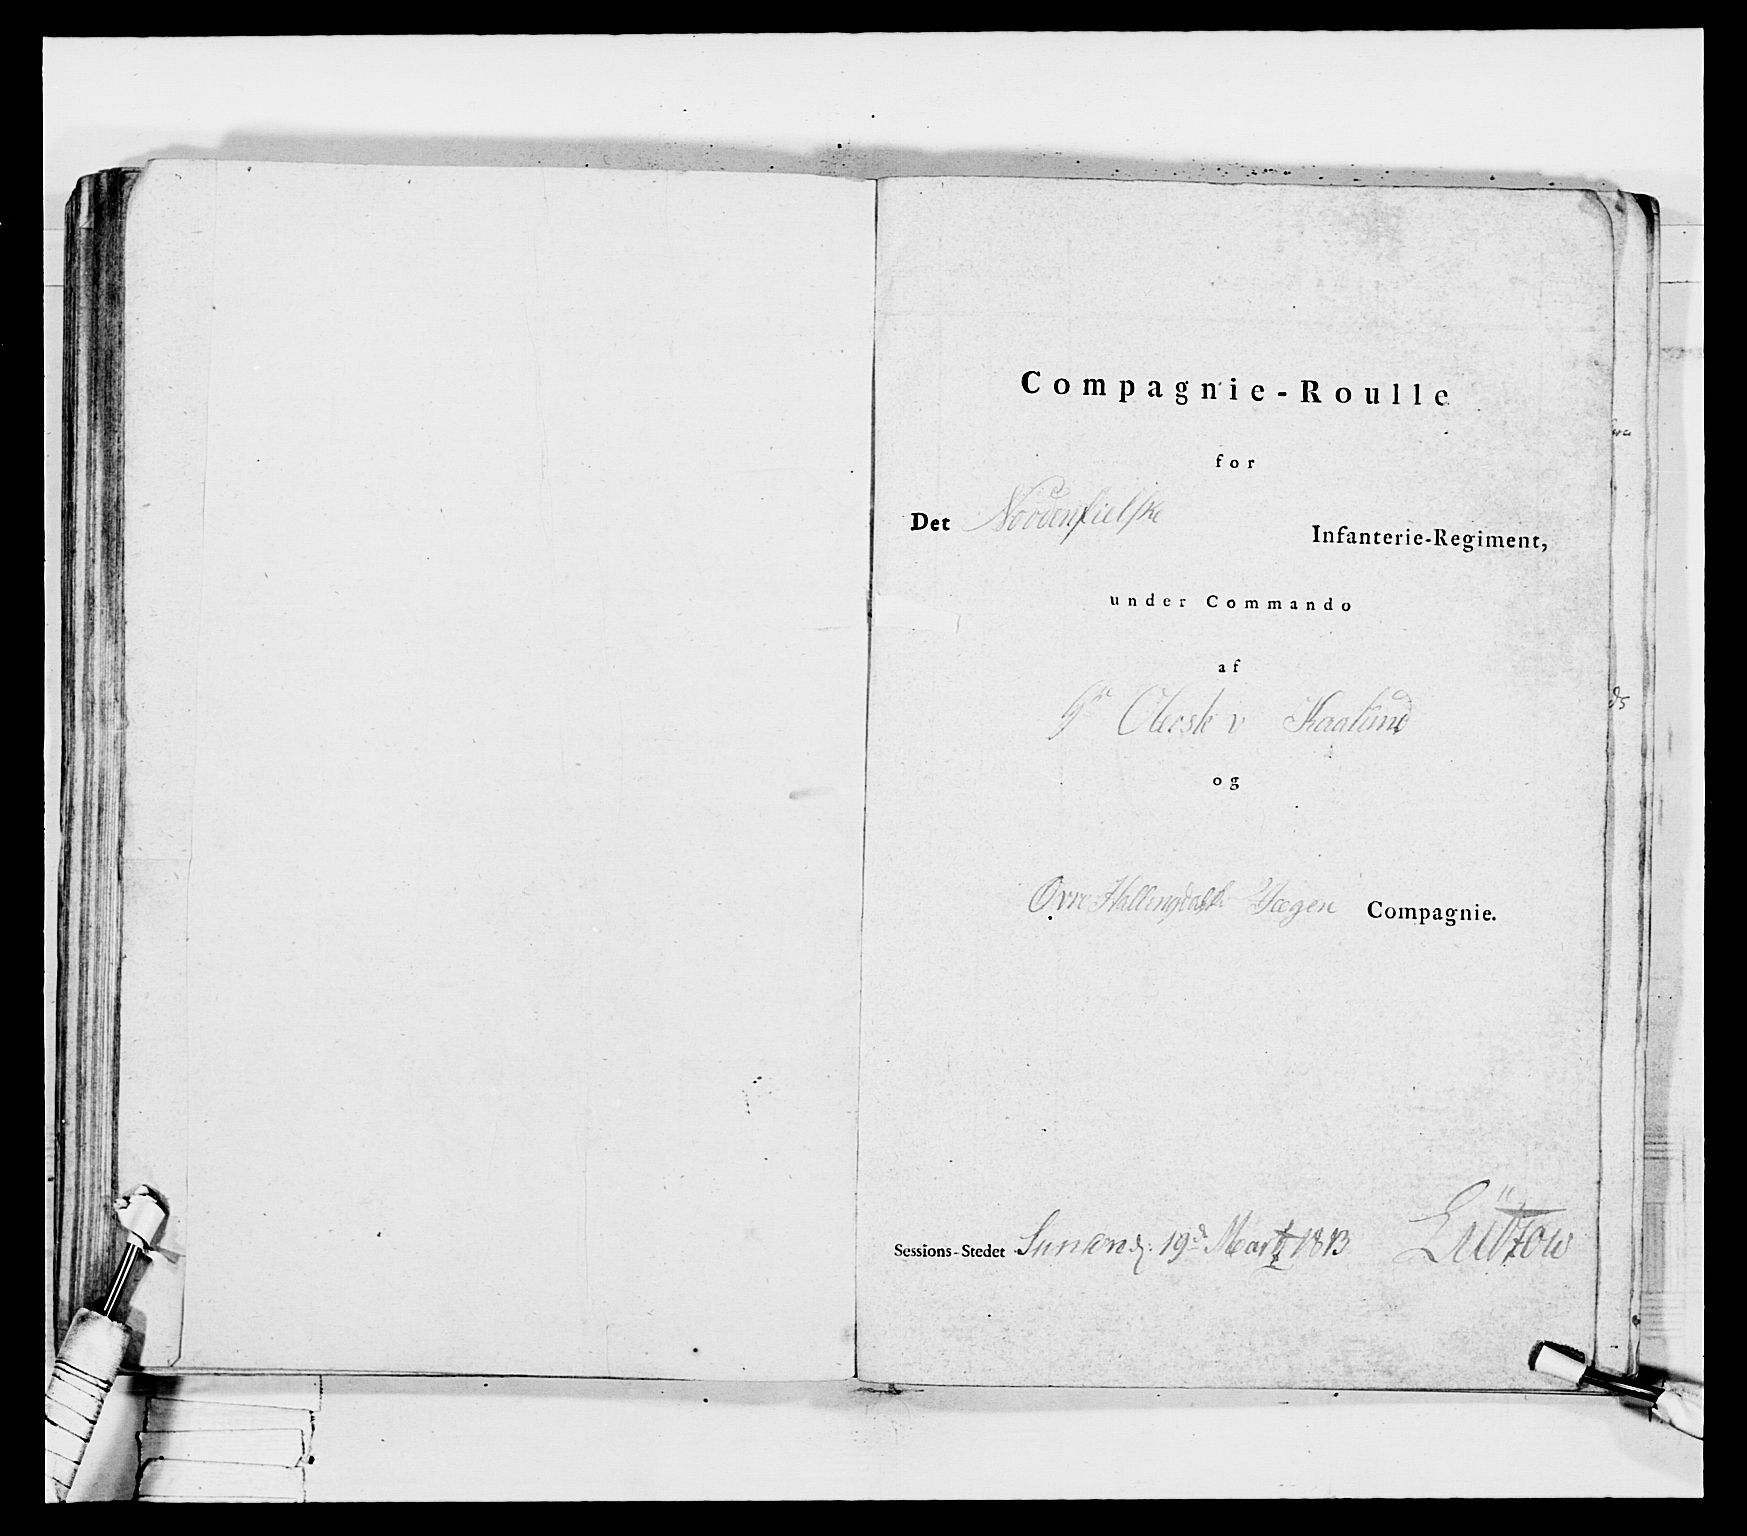 Compagnie-Roulle
for
Det Nordenfielske Infanterie-Regiment,
under Commando
af
Hr Oberst v Kaalund
og
Øvre Hallingdalske Jæger Compagnie.
Sessions-Stedet 19de Marti 1813 Lützow